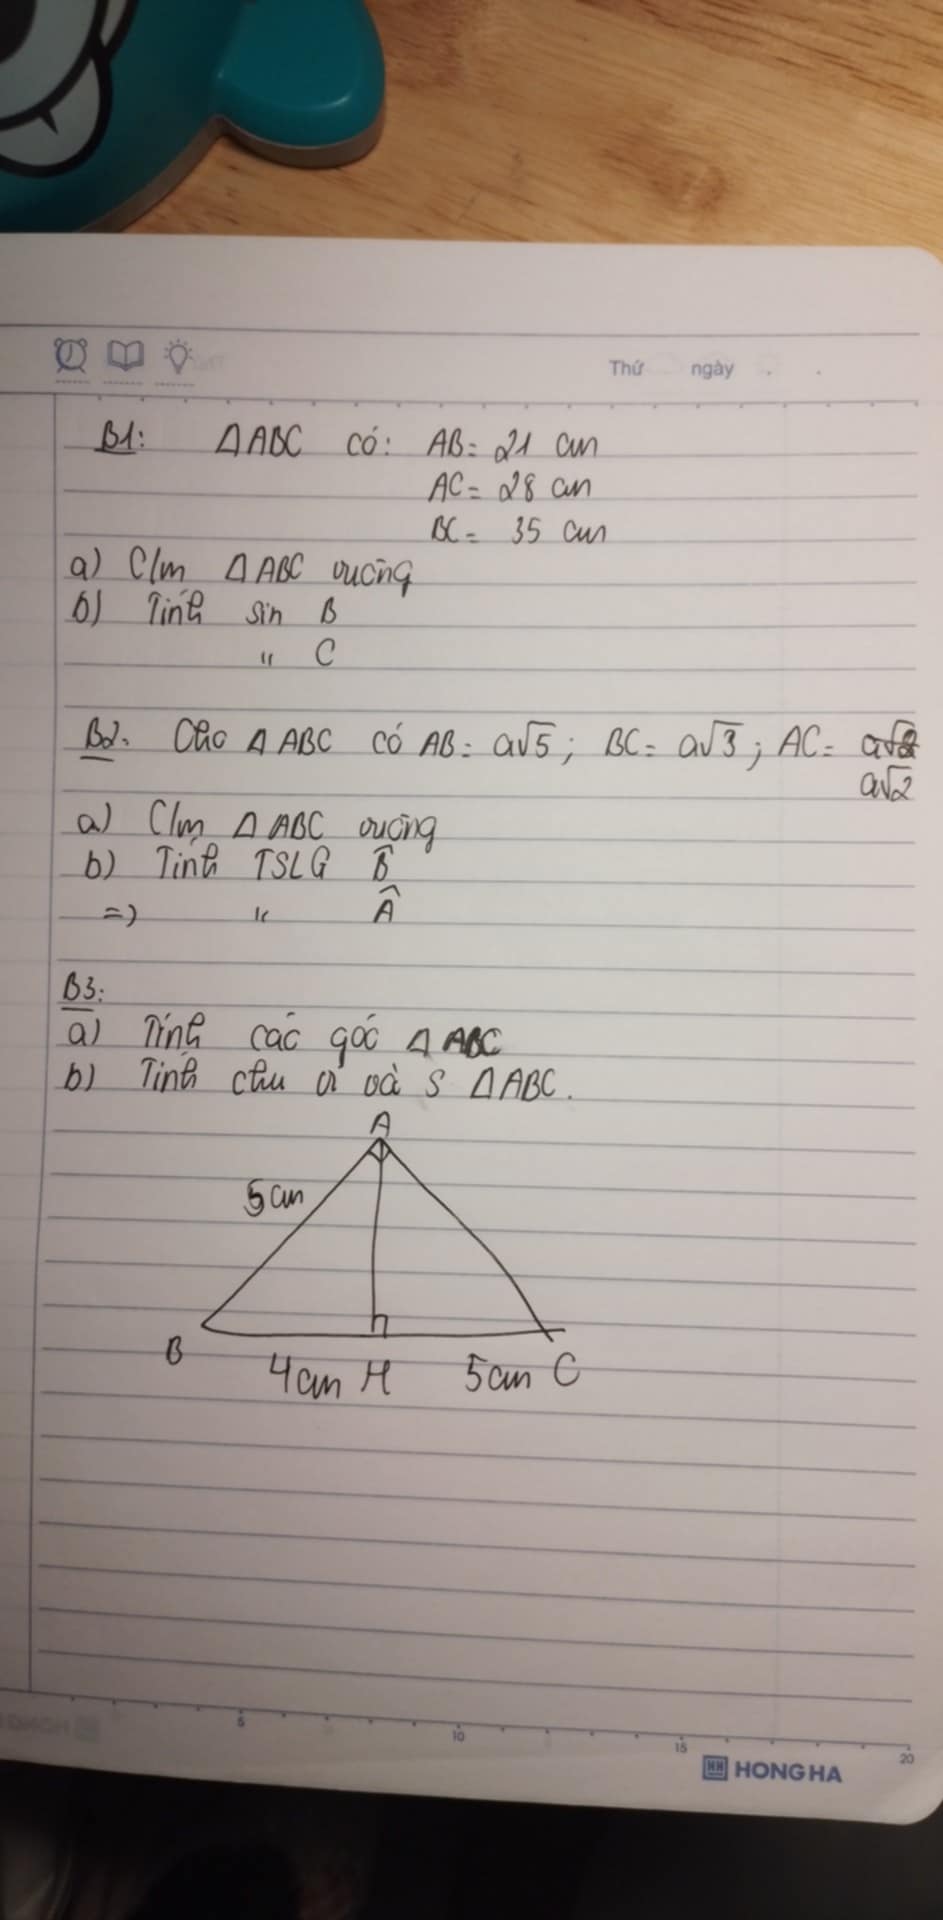 Thứ ngày . .
B1: △ABC có: AB = 21 cm
AC = 28 cm
BC = 35 cm
a) C/m △ABC vuông
b) Tính sin B
" C
B2: Cho △ABC có AB = a√5; BC = a√3; AC =
a√2
a) C/m △ABC vuông
b) Tính TSLG B̂
=> " Â
B3:
a) Tính các góc △ABC
b) Tính chu vi và S △ABC.
A
5cm
B
4cm H 5cm C
5
10
15
20
HH HONG HA